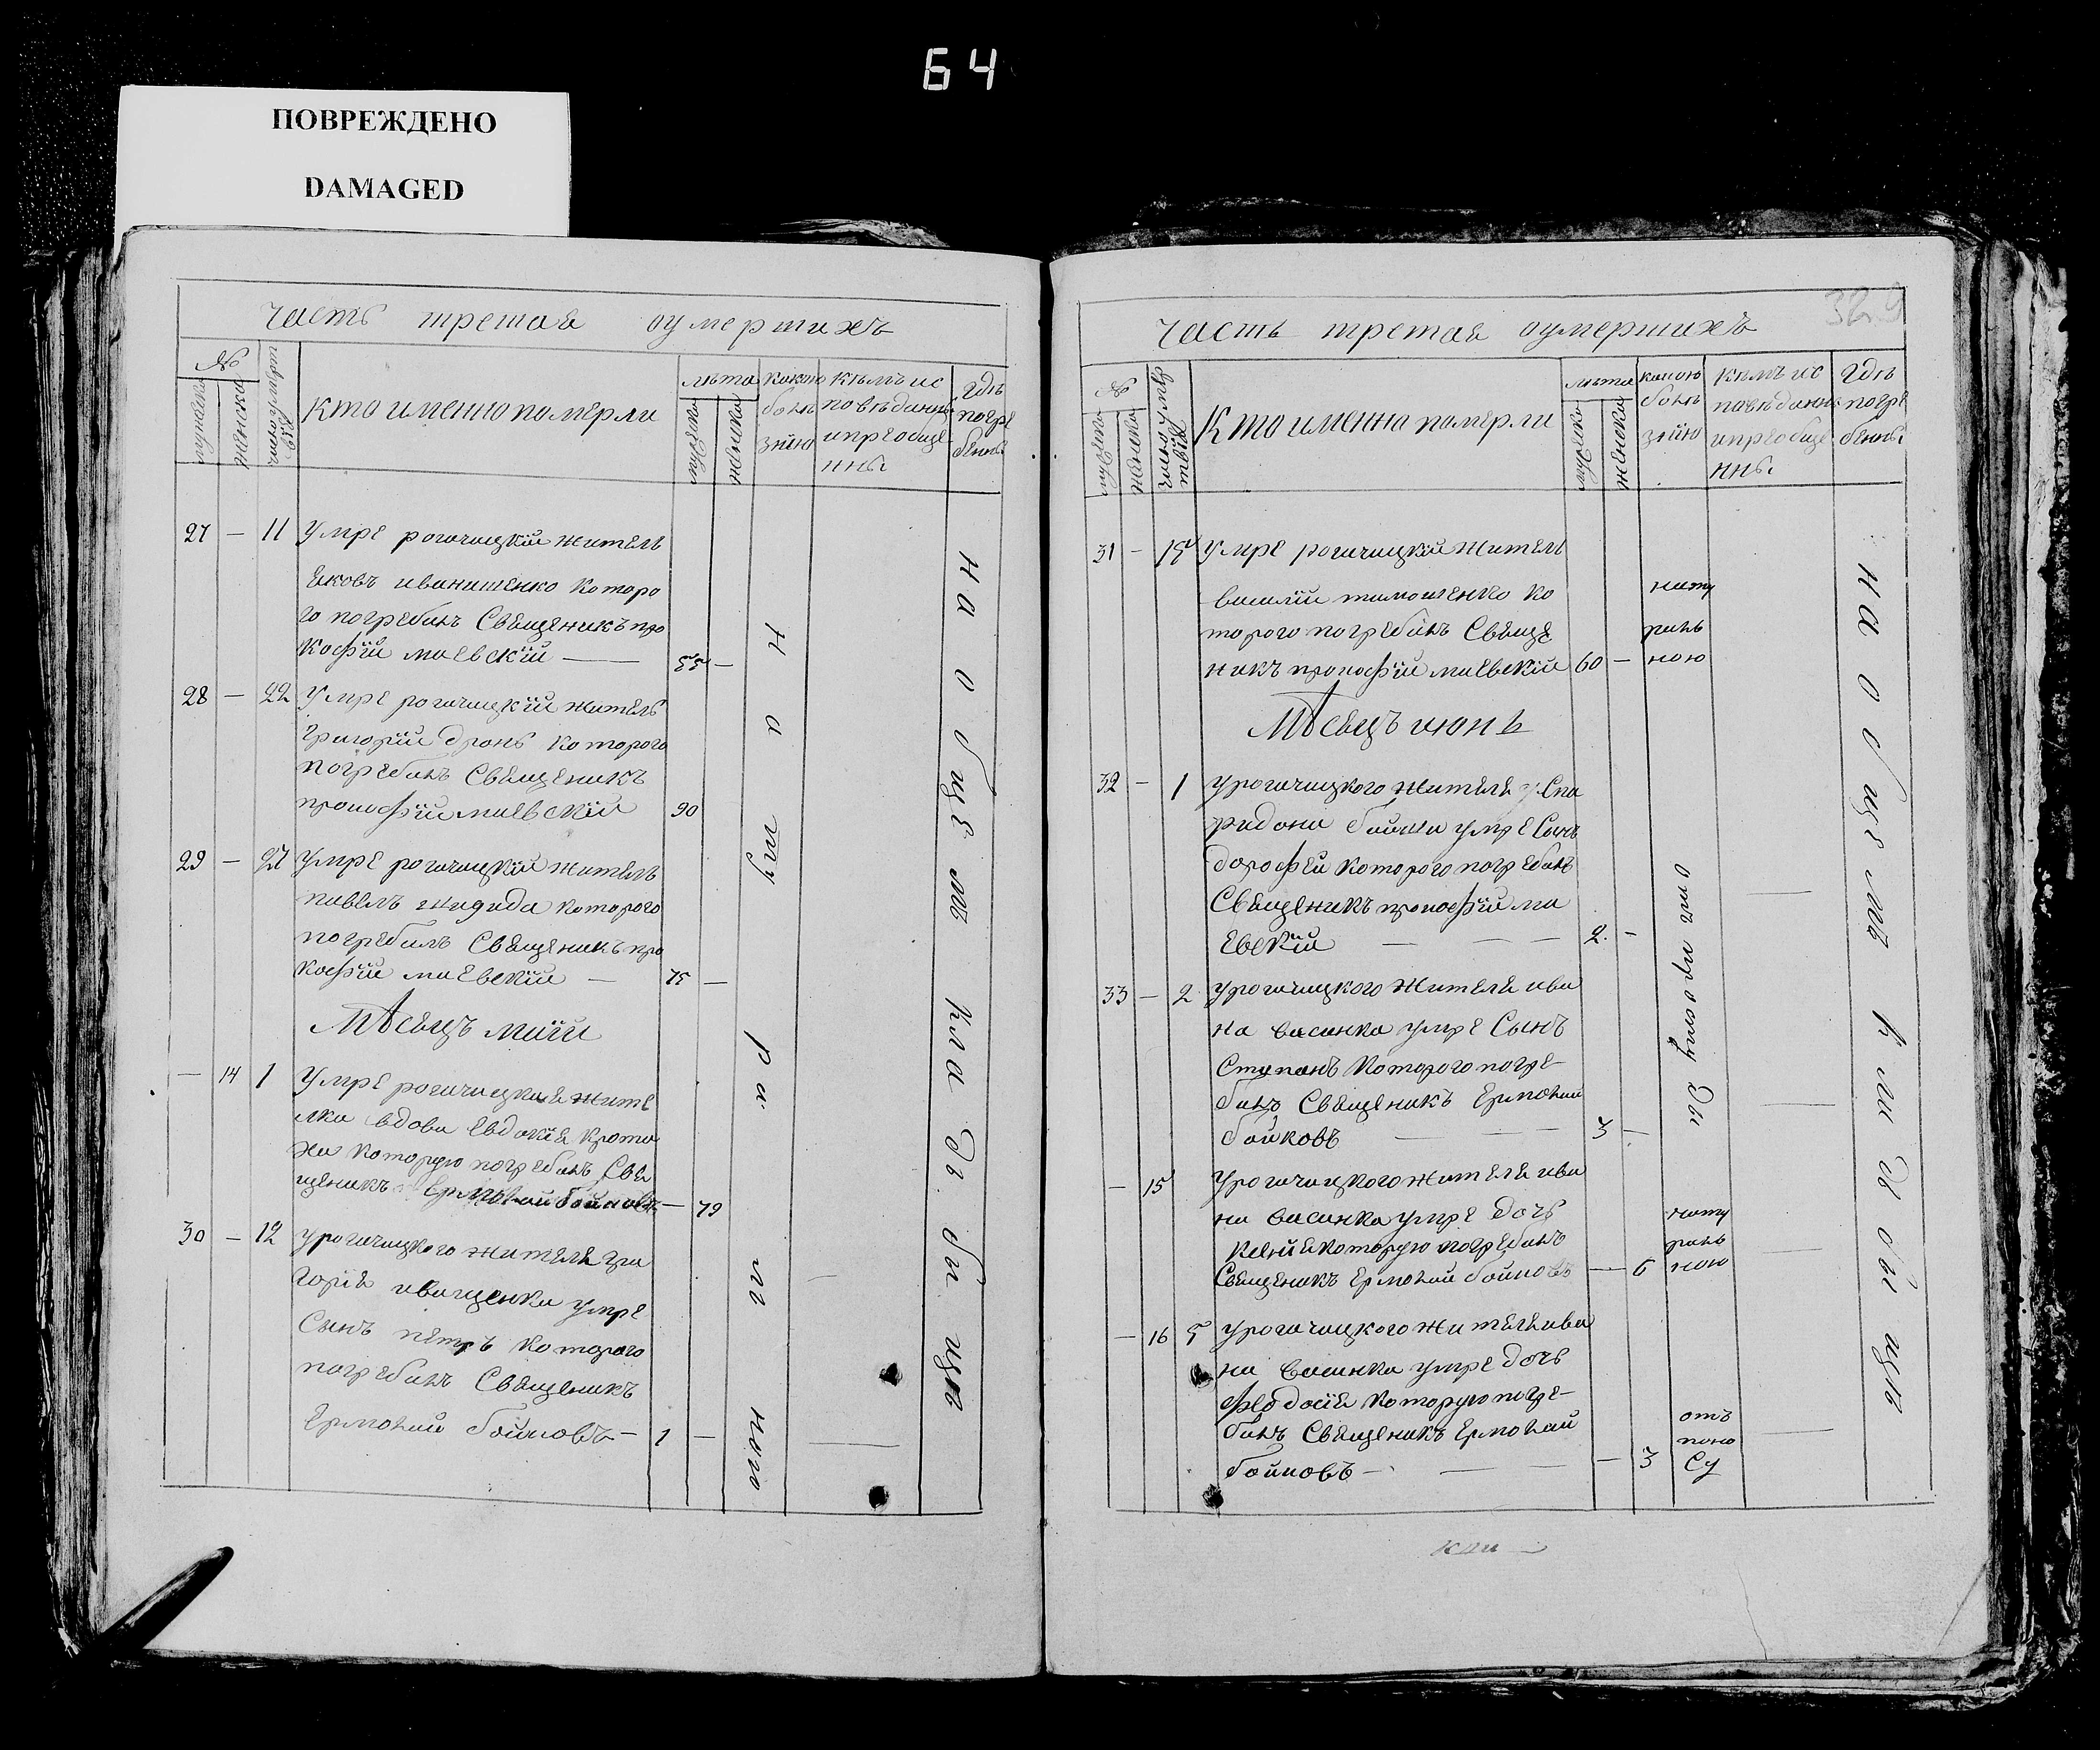 64
ПОВРЕЖДЕНО
DAMAGED
часть третая оумершихъ
№
мужеска
женска
число смерти
кто именно померли
лѣта
мужеска
женска
какою болѣзнію
кѣмъ исповѣданны и преобщенны
гдѣ погребены
27 — 11 Умре рогачицкїй житель
Яковъ иванишенко которо
го погребалъ Священикъ про
кофїй маевскїй — 55 —
28 — 22 Умре рогачицкїй житель
григорїй дронь которого
погребалъ Священикъ
прокофїй маевскїй 90
29 — 27 Умре рогачицкїй житель
павелъ которого
погребалъ Священикъ про
кофїй маевскїй — 75 —
Мѣсяцъ маїй
— 14 1 Умре рогачицкая жите
лка вдова Евдокїя крота
ха которую погребалъ Свя
щеникъ Ермолай бойковъ — 79
30 — 12 У рогачицкого жителя гри
горїя иващенка умре
Сынъ петръ которого
погребалъ Священикъ
Ермолай бойковъ — 1 —
натуралною
на общемъ кладбищѣ
часть третая оумершихъ
329
№
мужеска
женска
кто именно померли
лѣта
мужеска
женска
какою болѣзнію
кѣмъ исповѣданны и преобщенны
гдѣ погребены
31 — 15 Умре рогачицкїй житель
василїй тимошенко ко
торого погребалъ Свяще
никъ прокофїй маевскїй 60 —
натуралною
Мѣсяцъ июнь
32 — 1 У рогачицкого жителя у Спи
ридона бойка умре Сынъ
дорофей которого погребалъ
Священикъ прокофїй ма
евскїй — — — 2. —
33 — 2 У рогачицкого жителя ива
на васинка умре Сынъ
Степанъ которого погре
балъ Священикъ Ермолай
бойковъ — — — 3 —
— 15 У рогачицкого жителя ива
на васинка умре дочь
Ксенїя которую погребалъ
Священикъ Ермолай бойковъ — 6
натуралною
— 16 5 У рогачицкого жителя ива
на васинка умре дочь
Феодосїя которую погре
балъ Священикъ Ермолай
бойковъ — — — — 3
отъ поносу
на общемъ кладбищѣ